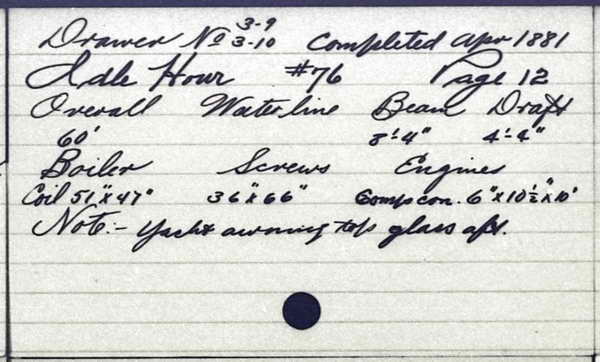 Drawer No 3-9 3-10 Completed Apr 1881
Idle Hour #76 Page 12
Overall Waterline Beam Draft
60' 8'-4" 4'-4"
Boiler Screws Engines
Coil 51"x47" 36"x66" Comp con. 6"x10½"x10"
Note:- Yacht awning top glass aft.